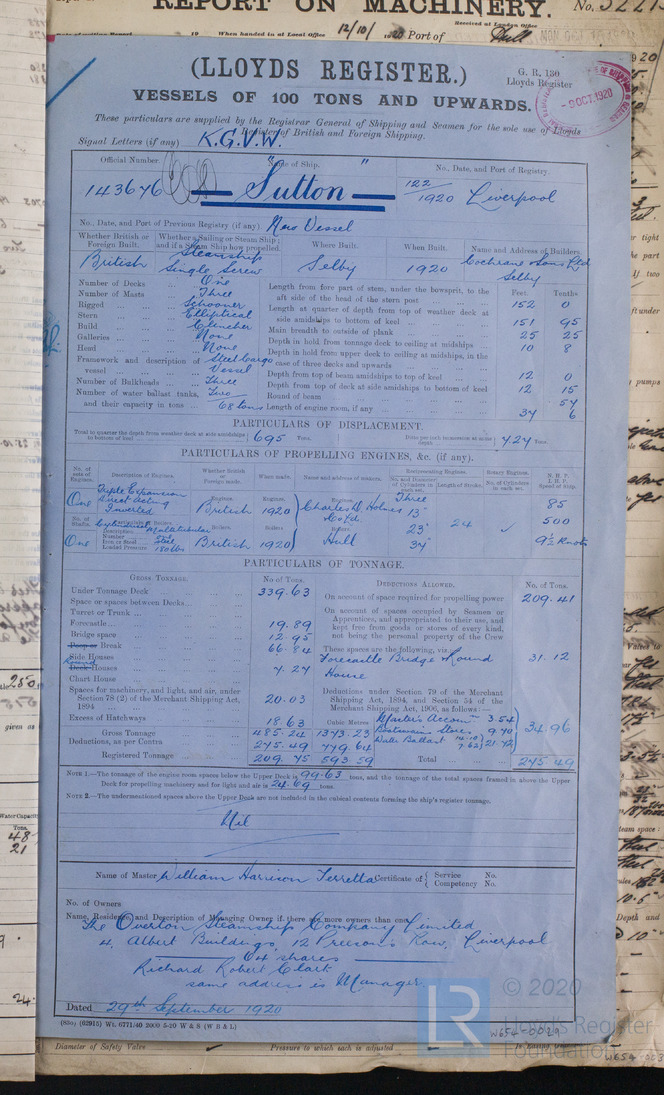 REPORT ON MACHINERY.
No.
Received at London Office
When handed in at Local Office 12/10/ 1920 Port of Hull
(LLOYDS REGISTER.)
G. R. 130
Lloyds Register
VESSELS OF 100 TONS AND UPWARDS.
- 9 OCT. 1920
These particulars are supplied by the Registrar General of Shipping and Seamen for the sole use of Lloyds
Register of British and Foreign Shipping.
Signal Letters (if any) K.G.V.W.
Official Number.
Name of Ship.
No., Date, and Port of Registry.
143646
"Sutton"
122/1920 Liverpool
No., Date, and Port of Previous Registry (if any) New Vessel
Whether British or Foreign Built.
Whether a Sailing or Steam Ship; and if a Steam Ship how propelled.
Where Built.
When Built.
Name and Address of Builders.
British
Steamship
Single Screw
Selby
1920
Cochrane & Sons Ltd
Selby
Number of Decks One
Number of Masts Three
Rigged Schooner
Stern Elliptical
Build Clencher
Galleries None
Head None
Framework and description of vessel Steel Cargo Vessel
Number of Bulkheads Three
Number of water ballast tanks, Two
and their capacity in tons 68 tons
Feet. Tenths
Length from fore part of stem, under the bowsprit, to the aft side of the head of the stern post 152 0
Length at quarter of depth from top of weather deck at side amidships to bottom of keel 151 95
Main breadth to outside of plank 25 25
Depth in hold from tonnage deck to ceiling at midships 10 8
Depth in hold from upper deck to ceiling at midships, in the case of three decks and upwards
Depth from top of beam amidships to top of keel 12 0
Depth from top of deck at side amidships to bottom of keel 12 15
Round of beam 54
Length of engine room, if any 34 6
PARTICULARS OF DISPLACEMENT.
Total to quarter the depth from weather deck at side amidships to bottom of keel 695 Tons.
Ditto per inch immersion at same depth 7.24 Tons
PARTICULARS OF PROPELLING ENGINES, &c. (if any).
No. of sets of Engines.
Description of Engines.
Whether British or Foreign made.
When made.
Name and address of makers.
Reciprocating Engines.
No. and Diameter of Cylinders in each set.
Length of Stroke.
Rotary Engines.
No. of Cylinders in each set.
N. H. P.
I. H. P.
Speed of Ship.
One
Triple Expansion
Direct Acting
Inverted
Engines.
British
Engines.
1920
Charles D Holmes
& Co Ltd
Three
15"
23"
34"
24
85
500
9½ Knots
No. of Shafts.
Description
Number
Iron or Steel
Loaded Pressure
Cylindrical Multitubular
One
Steel
180 lbs
One
Boilers.
British
Boilers
1920
Boilers.
Hull
PARTICULARS OF TONNAGE.
GROSS TONNAGE.
No. of Tons.
DEDUCTIONS ALLOWED.
No. of Tons.
Under Tonnage Deck 339.63
Space or spaces between Decks
Turret or Trunk
Forecastle 19.89
Bridge space 12.95
Poop or Break 66.84
Side Houses
Round
Deck Houses 7.27
Chart House
Spaces for machinery, and light, and air, under Section 78 (2) of the Merchant Shipping Act, 1894 20.03
Excess of Hatchways 18.63
Cubic Metres
Gross Tonnage 485.24 1373.23
Deductions, as per Contra 275.49 779.64
Registered Tonnage 209.75 593.59
On account of space required for propelling power 209.41
On account of spaces occupied by Seamen or Apprentices, and appropriated to their use, and kept free from goods or stores of every kind, not being the personal property of the Crew
These spaces are the following, viz.:
Forecastle Bridge & Round
House
31.12
Deductions under Section 79 of the Merchant Shipping Act, 1894, and Section 54 of the Merchant Shipping Act, 1906, as follows:—
Master's Accom 3.54
Boatswain Store 9.70
Water Ballast 14.10 7.62 21.72
34.96
Total 275.49
NOTE 1.—The tonnage of the engine room spaces below the Upper Deck is 99.63 tons, and the tonnage of the total spaces framed in above the Upper Deck for propelling machinery and for light and air is 24.69 tons.
NOTE 2.—The undermentioned spaces above the Upper Deck are not included in the cubical contents forming the ship's register tonnage.
Nil
Name of Master William Harrison Certificate of { Service No.
Competency No.
No. of Owners
Name, Residence, and Description of Managing Owner if there are more owners than one
The Overton Steamship Company Limited
4, Albert Buildings, 12 Preeson's Row, Liverpool
64 shares
Richard Robert Clark
same address is Manager.
Dated 29th September 1920
(850) (62915) Wt. 6771/40 2000 5-20 W & S (W B & L)
W654-0029
© 2020
LR
Lloyd's Register
Foundation
Diameter of Safety Valve
Pressure to which each is adjusted